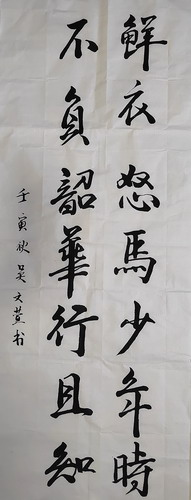 鮮衣怒馬少年時
不負韶華行且知
壬寅秋吴文萱书